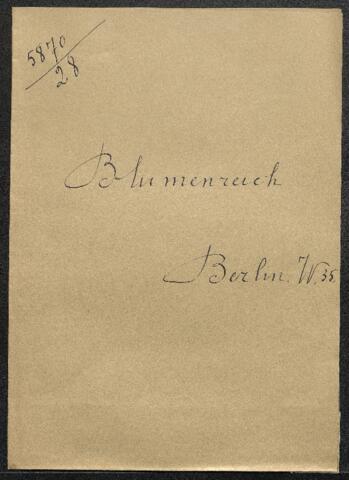 5870/28
Blumenreich
Berlin. W. 35.